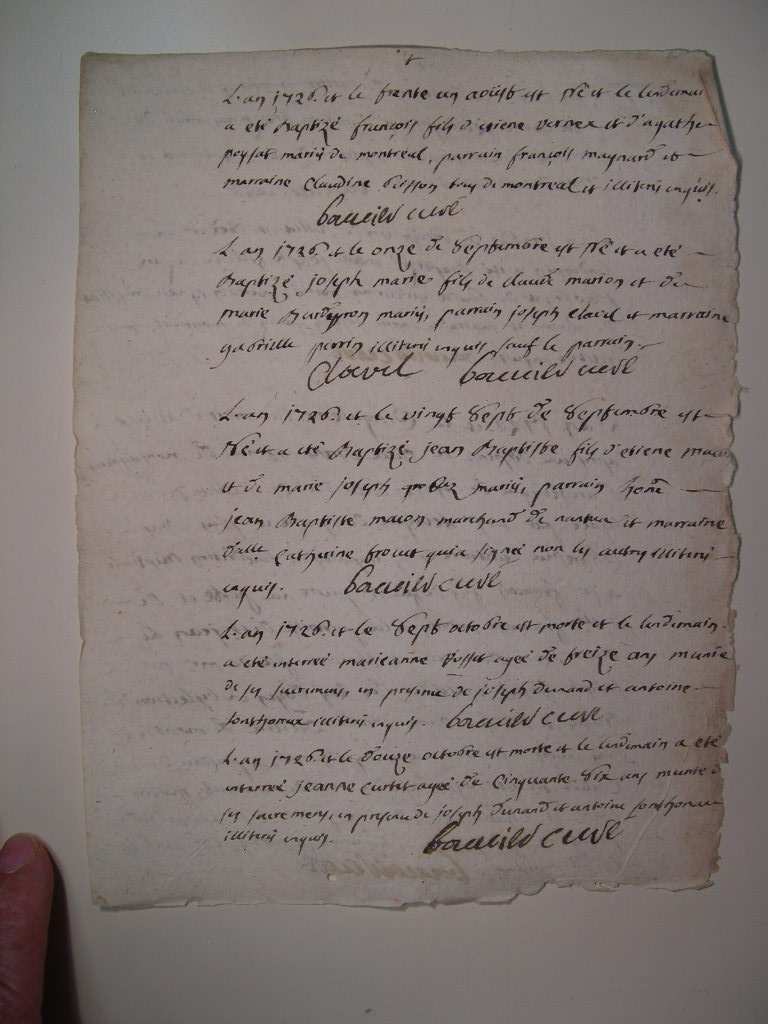 L'an 1726. et le trente un aoûst est né et le lendemain
a eté Baptizé françois fils d'etiene vernex et d'agathe
peysat mariés de montreal, parrain françois maynard et
marraine Claudine buy de montreal et illiterés enquis.
curé
L'an 1726. et le onze de septembre est né et a eté
Baptizé joseph marie fils de claude marion et de
marie mariés, parrain joseph clavel et marraine
gabrielle perrin illiterés enquis sauf le parrain.
Clavel curé
L'an 1726. et le vingt sept de septembre est
né et a eté Baptizé jean Baptiste fils d'etiene
et de marie joseph mariés, parrain hone
jean Baptiste macon marchand de nantua et marraine
dlle Catherine qui a signée non les autres illiterés
enquis. curé
L'an 1726. et le sept octobre est morte et le lendemain
a eté interreé marieanne ageé de treize ans munie
de ses sacremens, en presence de joseph durand et antoine
sonthonax illiterés enquis. curé
L'an 1726. et le douze octobre est morte et le lendemain a eté
interreé jeanne curtet ageé de cinquante six ans munie de
ses sacremens, en presence de joseph durand et antoine sonthonax
illiterés enquis. curé